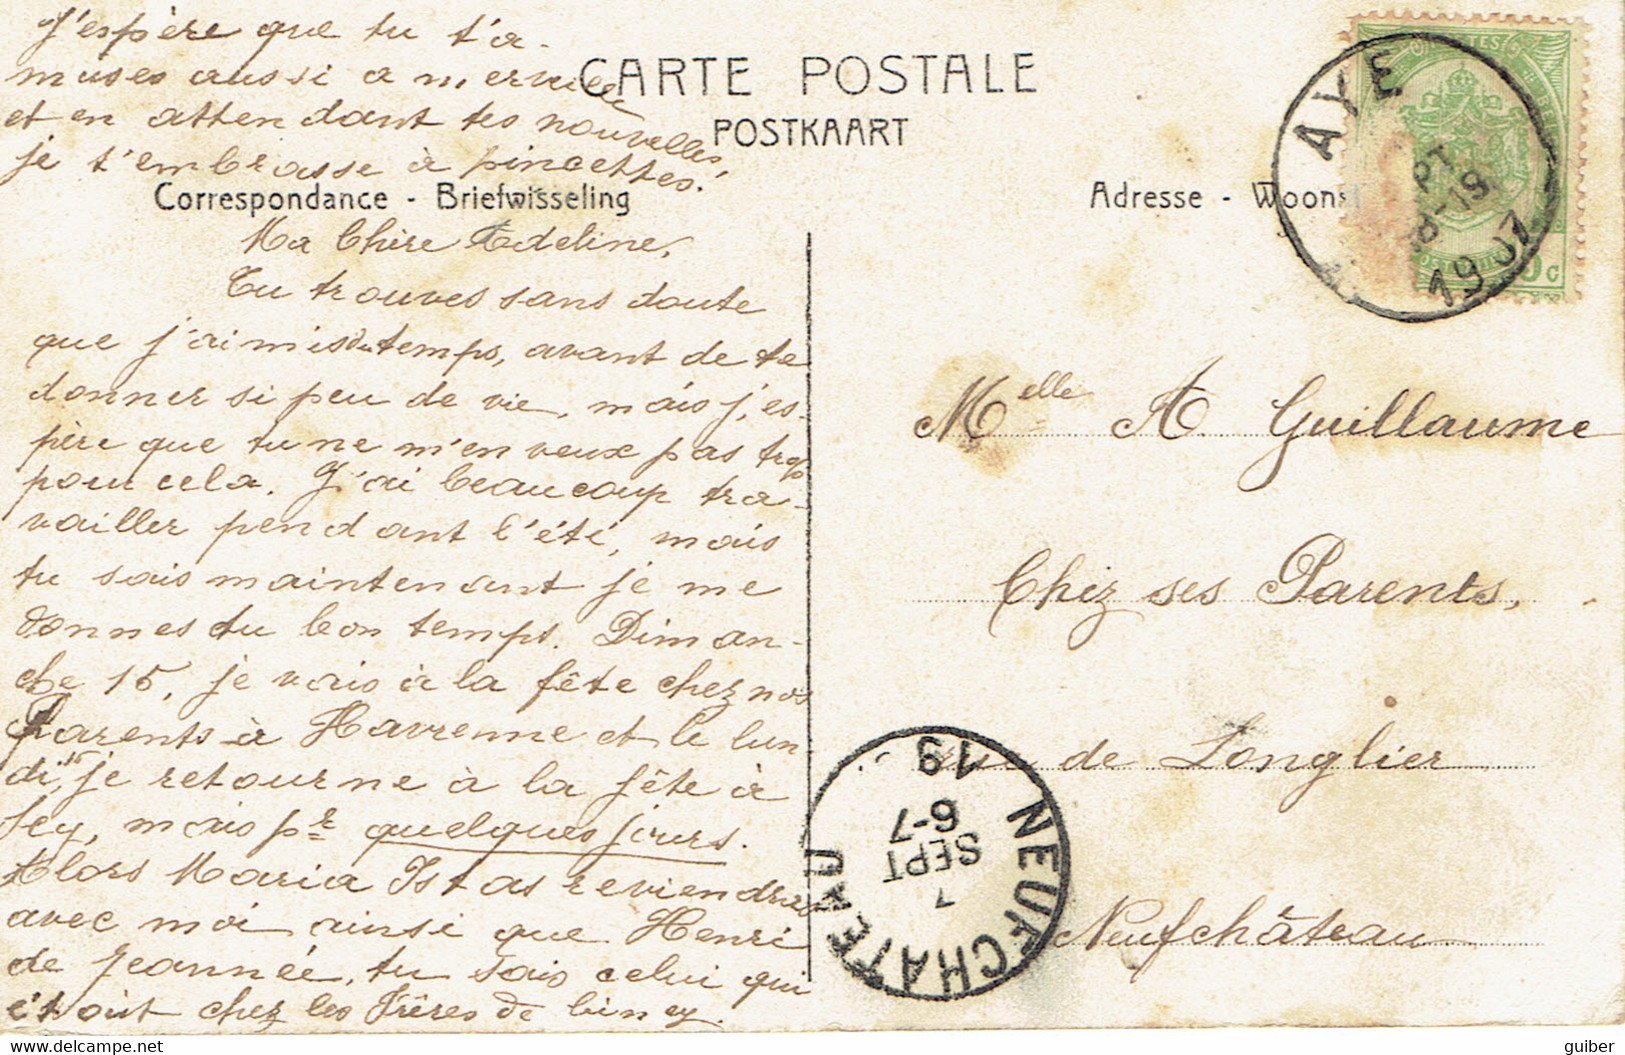 J'espère que tu t'a-
muses aussi a merveille
et en attendant tes nouvelles
je t'embrasse à pincettes.
CARTE POSTALE
POSTKAART
Correspondance - Briefwisseling
Adresse - Woonst
AYE
8-19
1907
Ma Chère Adeline,
Tu trouves sans doute
que j'ai mis du temps, avant de te
donner si peu de vie, mais j'es-
père que tu ne m'en veux pas trop
pour cela. J'ai beaucoup tra-
vailler pendant l'été, mais
tu sais maintenant je me
donnes du bon temps. Diman-
che 15, je vais à la fête chez nos
Parents à Havrenne et le lun-
di, je retourne à la fête à
Sey, mais pr quelques jours.
Alors Maria Istas reviendras
avec moi ainsi que Henri
de Jeannée, tu sais celui qui
étoit chez les Frères de Ciney.
Melle A. Guillaume
Chez ses Parents,
rue de Longlier
Neufchâteau
NEUFCHATEAU
7
SEPT
6-7
19
guiber